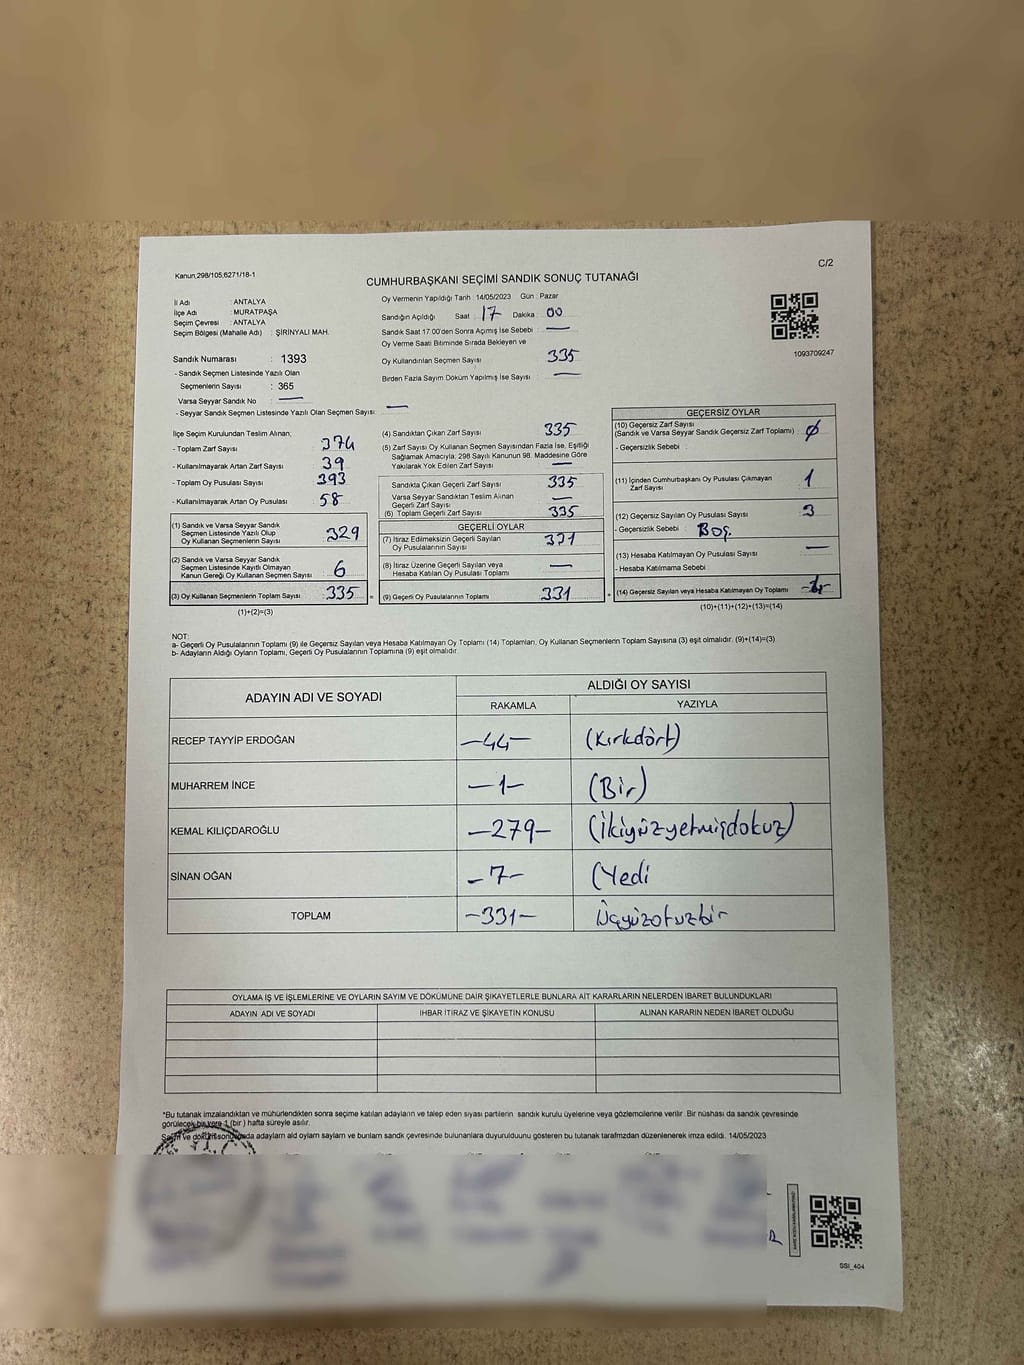 Kanun,298/105;6271/18-1
C/2
CUMHURBAŞKANI SEÇİMİ SANDIK SONUÇ TUTANAĞI
İl Adı : ANTALYA
İlçe Adı : MURATPAŞA
Seçim Çevresi : ANTALYA
Seçim Bölgesi (Mahalle Adı) : ŞİRİNYALI MAH.
Sandık Numarası : 1393
- Sandık Seçmen Listesinde Yazılı Olan
Seçmenlerin Sayısı : 365
Varsa Seyyar Sandık No : —
- Seyyar Sandık Seçmen Listesinde Yazılı Olan Seçmen Sayısı: —
Oy Vermenin Yapıldığı Tarih : 14/05/2023 Gün : Pazar
Sandığın Açıldığı Saat : 17 Dakika : 00
Sandık Saat 17:00'den Sonra Açımış İse Sebebi : —
Oy Verme Saati Bitiminde Sırada Bekleyen ve
Oy Kullandırılan Seçmen Sayısı : 335
Birden Fazla Sayım Döküm Yapılmış İse Sayısı : —
1093709247
İlçe Seçim Kurulundan Teslim Alınan;
- Toplam Zarf Sayısı : 374
- Kullanılmayarak Artan Zarf Sayısı : 39
- Toplam Oy Pusulası Sayısı : 393
- Kullanılmayarak Artan Oy Pusulası : 58
(1) Sandık ve Varsa Seyyar Sandık
Seçmen Listesinde Yazılı Olup
Oy Kullanan Seçmenlerin Sayısı : 329
(2) Sandık ve Varsa Seyyar Sandık
Seçmen Listesinde Kayıtlı Olmayan
Kanun Gereği Oy Kullanan Seçmen Sayısı : 6
(3) Oy Kullanan Seçmenlerin Toplam Sayısı : 335 =
(1)+(2)=(3)
(4) Sandıktan Çıkan Zarf Sayısı : 335
(5) Zarf Sayısı Oy Kullanan Seçmen Sayısından Fazla İse, Eşitliği
Sağlamak Amacıyla; 298 Sayılı Kanunun 98. Maddesine Göre
Yakılarak Yok Edilen Zarf Sayısı : —
Sandıkta Çıkan Geçerli Zarf Sayısı : 335
Varsa Seyyar Sandıktan Teslim Alınan
Geçerli Zarf Sayısı : —
(6) Toplam Geçerli Zarf Sayısı : 335
GEÇERLİ OYLAR
(7) İtiraz Edilmeksizin Geçerli Sayılan
Oy Pusulalarının Sayısı : 331
(8) İtiraz Üzerine Geçerli Sayılan veya
Hesaba Katılan Oy Pusulası Toplamı : —
(9) Geçerli Oy Pusulalarının Toplamı : 331 +
GEÇERSİZ OYLAR
(10) Geçersiz Zarf Sayısı
(Sandık ve Varsa Seyyar Sandık Geçersiz Zarf Toplamı) : Ø
- Geçersizlik Sebebi :
(11) İçinden Cumhurbaşkanı Oy Pusulası Çıkmayan
Zarf Sayısı : 1
(12) Geçersiz Sayılan Oy Pusulası Sayısı : 3
- Geçersizlik Sebebi : Boş.
(13) Hesaba Katılmayan Oy Pusulası Sayısı : —
- Hesaba Katılmama Sebebi
(14) Geçersiz Sayılan veya Hesaba Katılmayan Oy Toplamı
(10)+(11)+(12)+(13)=(14)
NOT:
a- Geçerli Oy Pusulalarının Toplamı (9) ile Geçersiz Sayılan veya Hesaba Katılmayan Oy Toplamı (14) Toplamları, Oy Kullanan Seçmenlerin Toplam Sayısına (3) eşit olmalıdır. (9)+(14)=(3)
b- Adayların Aldığı Oyların Toplamı, Geçerli Oy Pusulalarının Toplamına (9) eşit olmalıdır.
ADAYIN ADI VE SOYADI ALDIĞI OY SAYISI
RAKAMLA YAZIYLA
RECEP TAYYİP ERDOĞAN —44— (Kırkdört)
MUHARREM İNCE —1— (Bir)
KEMAL KILIÇDAROĞLU —279— (İkiyüzyetmişdokuz)
SİNAN OĞAN —7— (Yedi
TOPLAM —331— Üçyüzotuzbir
OYLAMA İŞ VE İŞLEMLERİNE VE OYLARIN SAYIM VE DÖKÜMÜNE DAİR ŞİKAYETLERLE BUNLARA AİT KARARLARIN NELERDEN İBARET BULUNDUKLARI
ADAYIN ADI VE SOYADI İHBAR İTİRAZ VE ŞİKAYETİN KONUSU ALINAN KARARIN NEDEN İBARET OLDUĞU
*Bu tutanak imzalandıktan ve mühürlendikten sonra seçime katılan adayların ve talep eden siyasi partilerin sandık kurulu üyelerine veya gözlemcilerine verilir. Bir nüshası da sandık çevresinde
görülecek bir yere 1 (bir) hafta süreyle asılır.
Seçim ve döküm sonuçunda adaylarn ald oylarn saylarn ve bunlarn sandık çevresinde bulunanlara duyurulduunu gösteren bu tutanak tarafmzdan düzenlenerek imza edildi. 14/05/2023
SSI_404